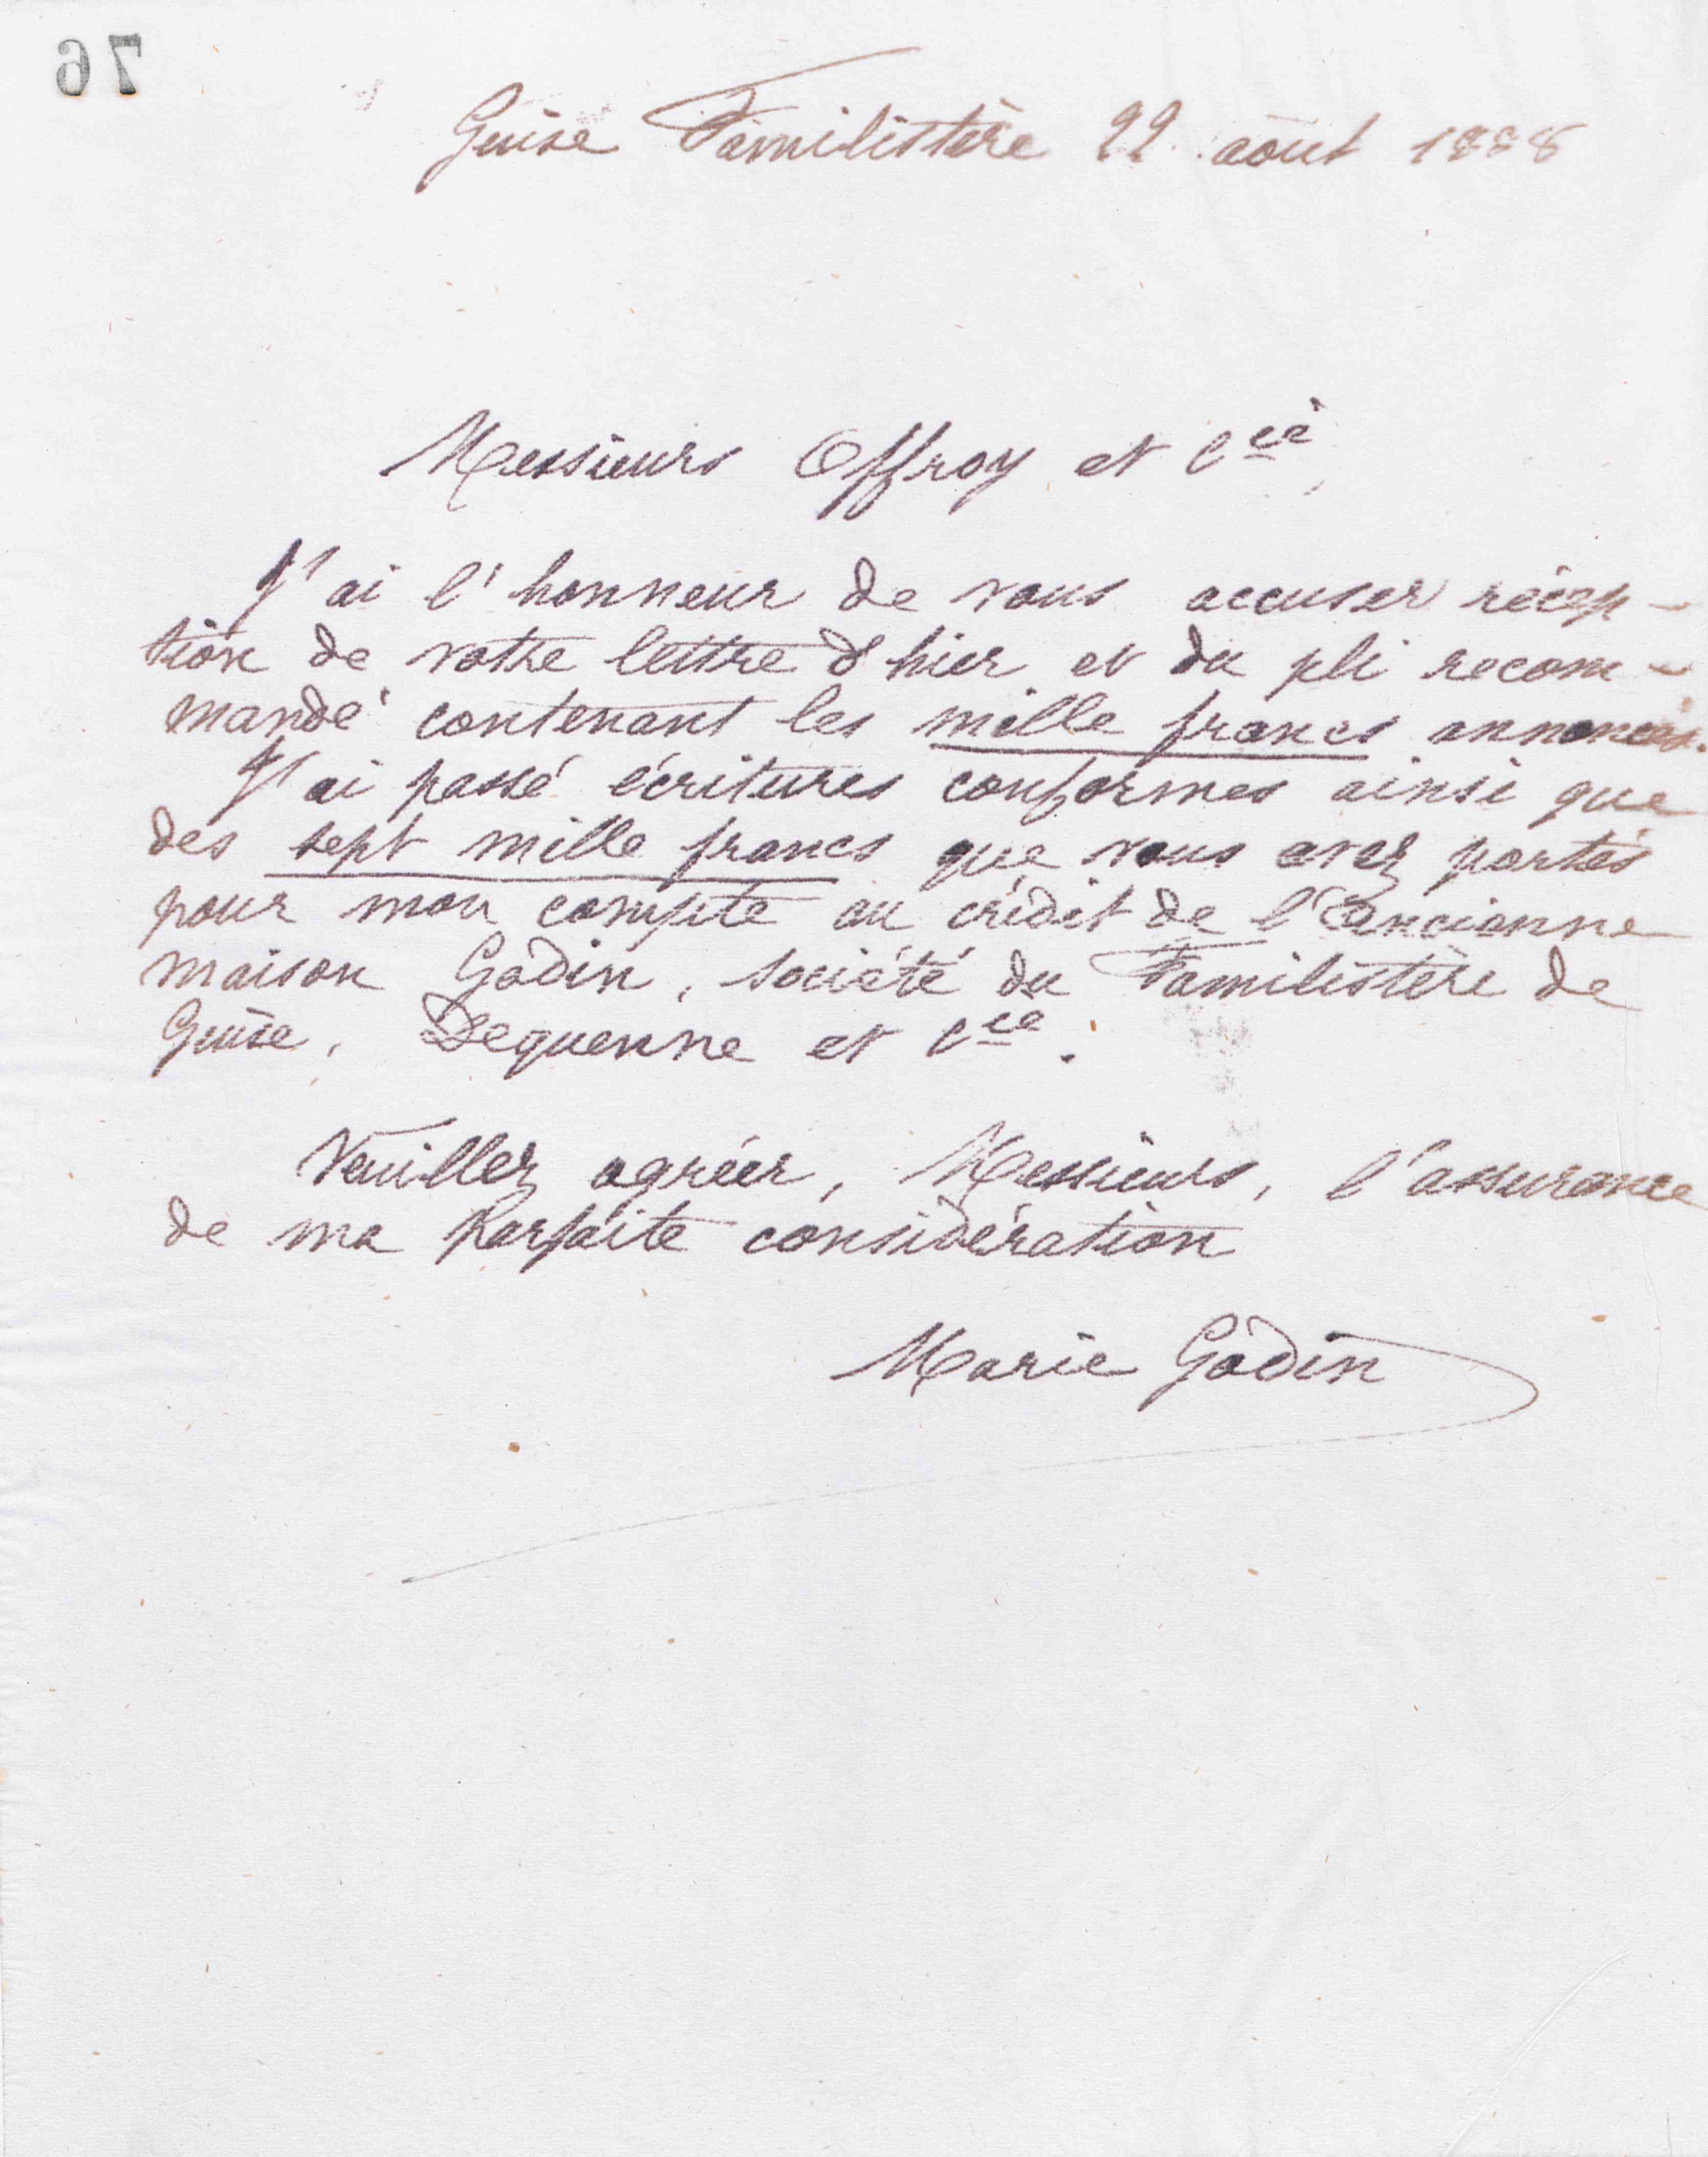 76
Guise Familistère 22 août 1888
Messieurs Offroy et Cie,
J'ai l'honneur de vous accuser récep-
tion de votre lettre d'hier et du pli recom-
mandé contenant les mille francs annoncés.
J'ai passé écritures conformes ainsi que
des sept mille francs que vous avez portés
pour mon compte au crédit de l'Ancienne
maison Godin, société du Familistère de
Guise, Dequenne et Cie.
Veuillez agréer, Messieurs, l'assurance
de ma parfaite considération
Marie Godin